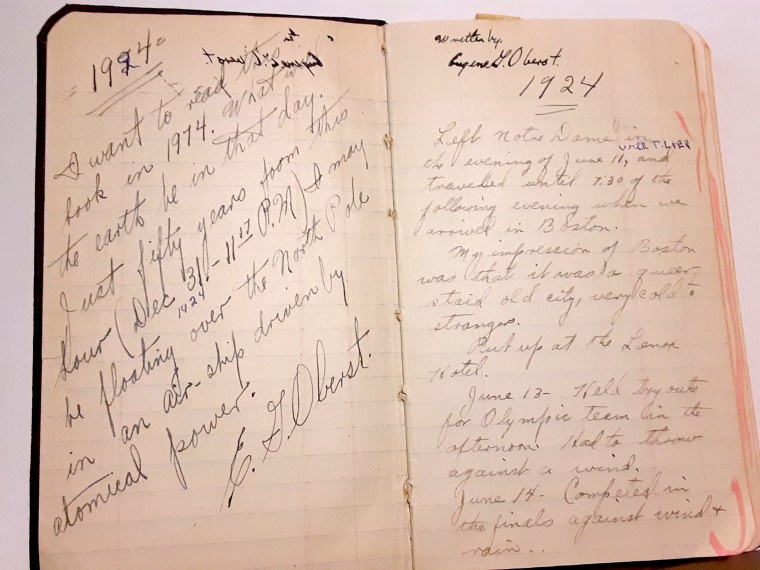 1924
I want to read this
book in 1974. What will
the earth be in that day.
Just fifty years from this
hour (Dec 31 - 11 15 P.M) I may
1924
be floating over the North Pole
in an air-ship driven by
atomical power.
E. G. Oberst.
written by.
Eugene G. Oberst.
1924
Left Notre Dame in
the evening of June 11, and
travelled until 7:30 of the
following evening when we
arrived in Boston.
My impression of Boston
was that it was a queer
staid old city, very cold to
strangers.
Put up at the Lenox
Hotel.
June 13 - Held try outs
for Olympic team in the
afternoon. Had to throw
against a wind.
June 14 - Competed in
the finals against wind +
rain..